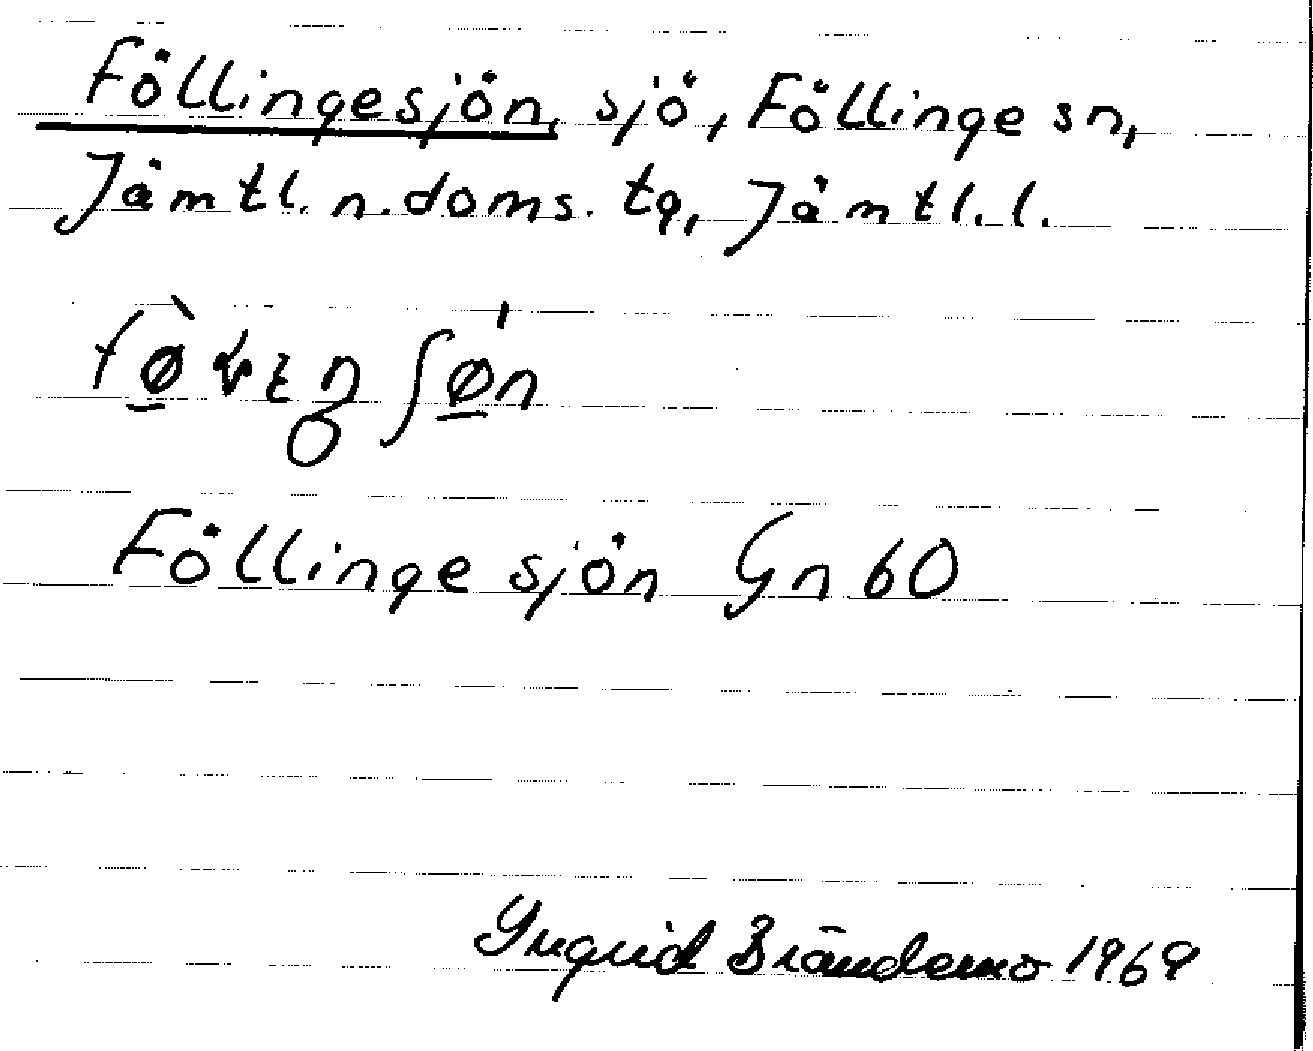 Föllingesjön, sjö, Föllinge sn,
Jämtl. n. doms. tg, Jämtl. l.
Föllinge sjön Gn 60
Ingrid Brändemo 1969